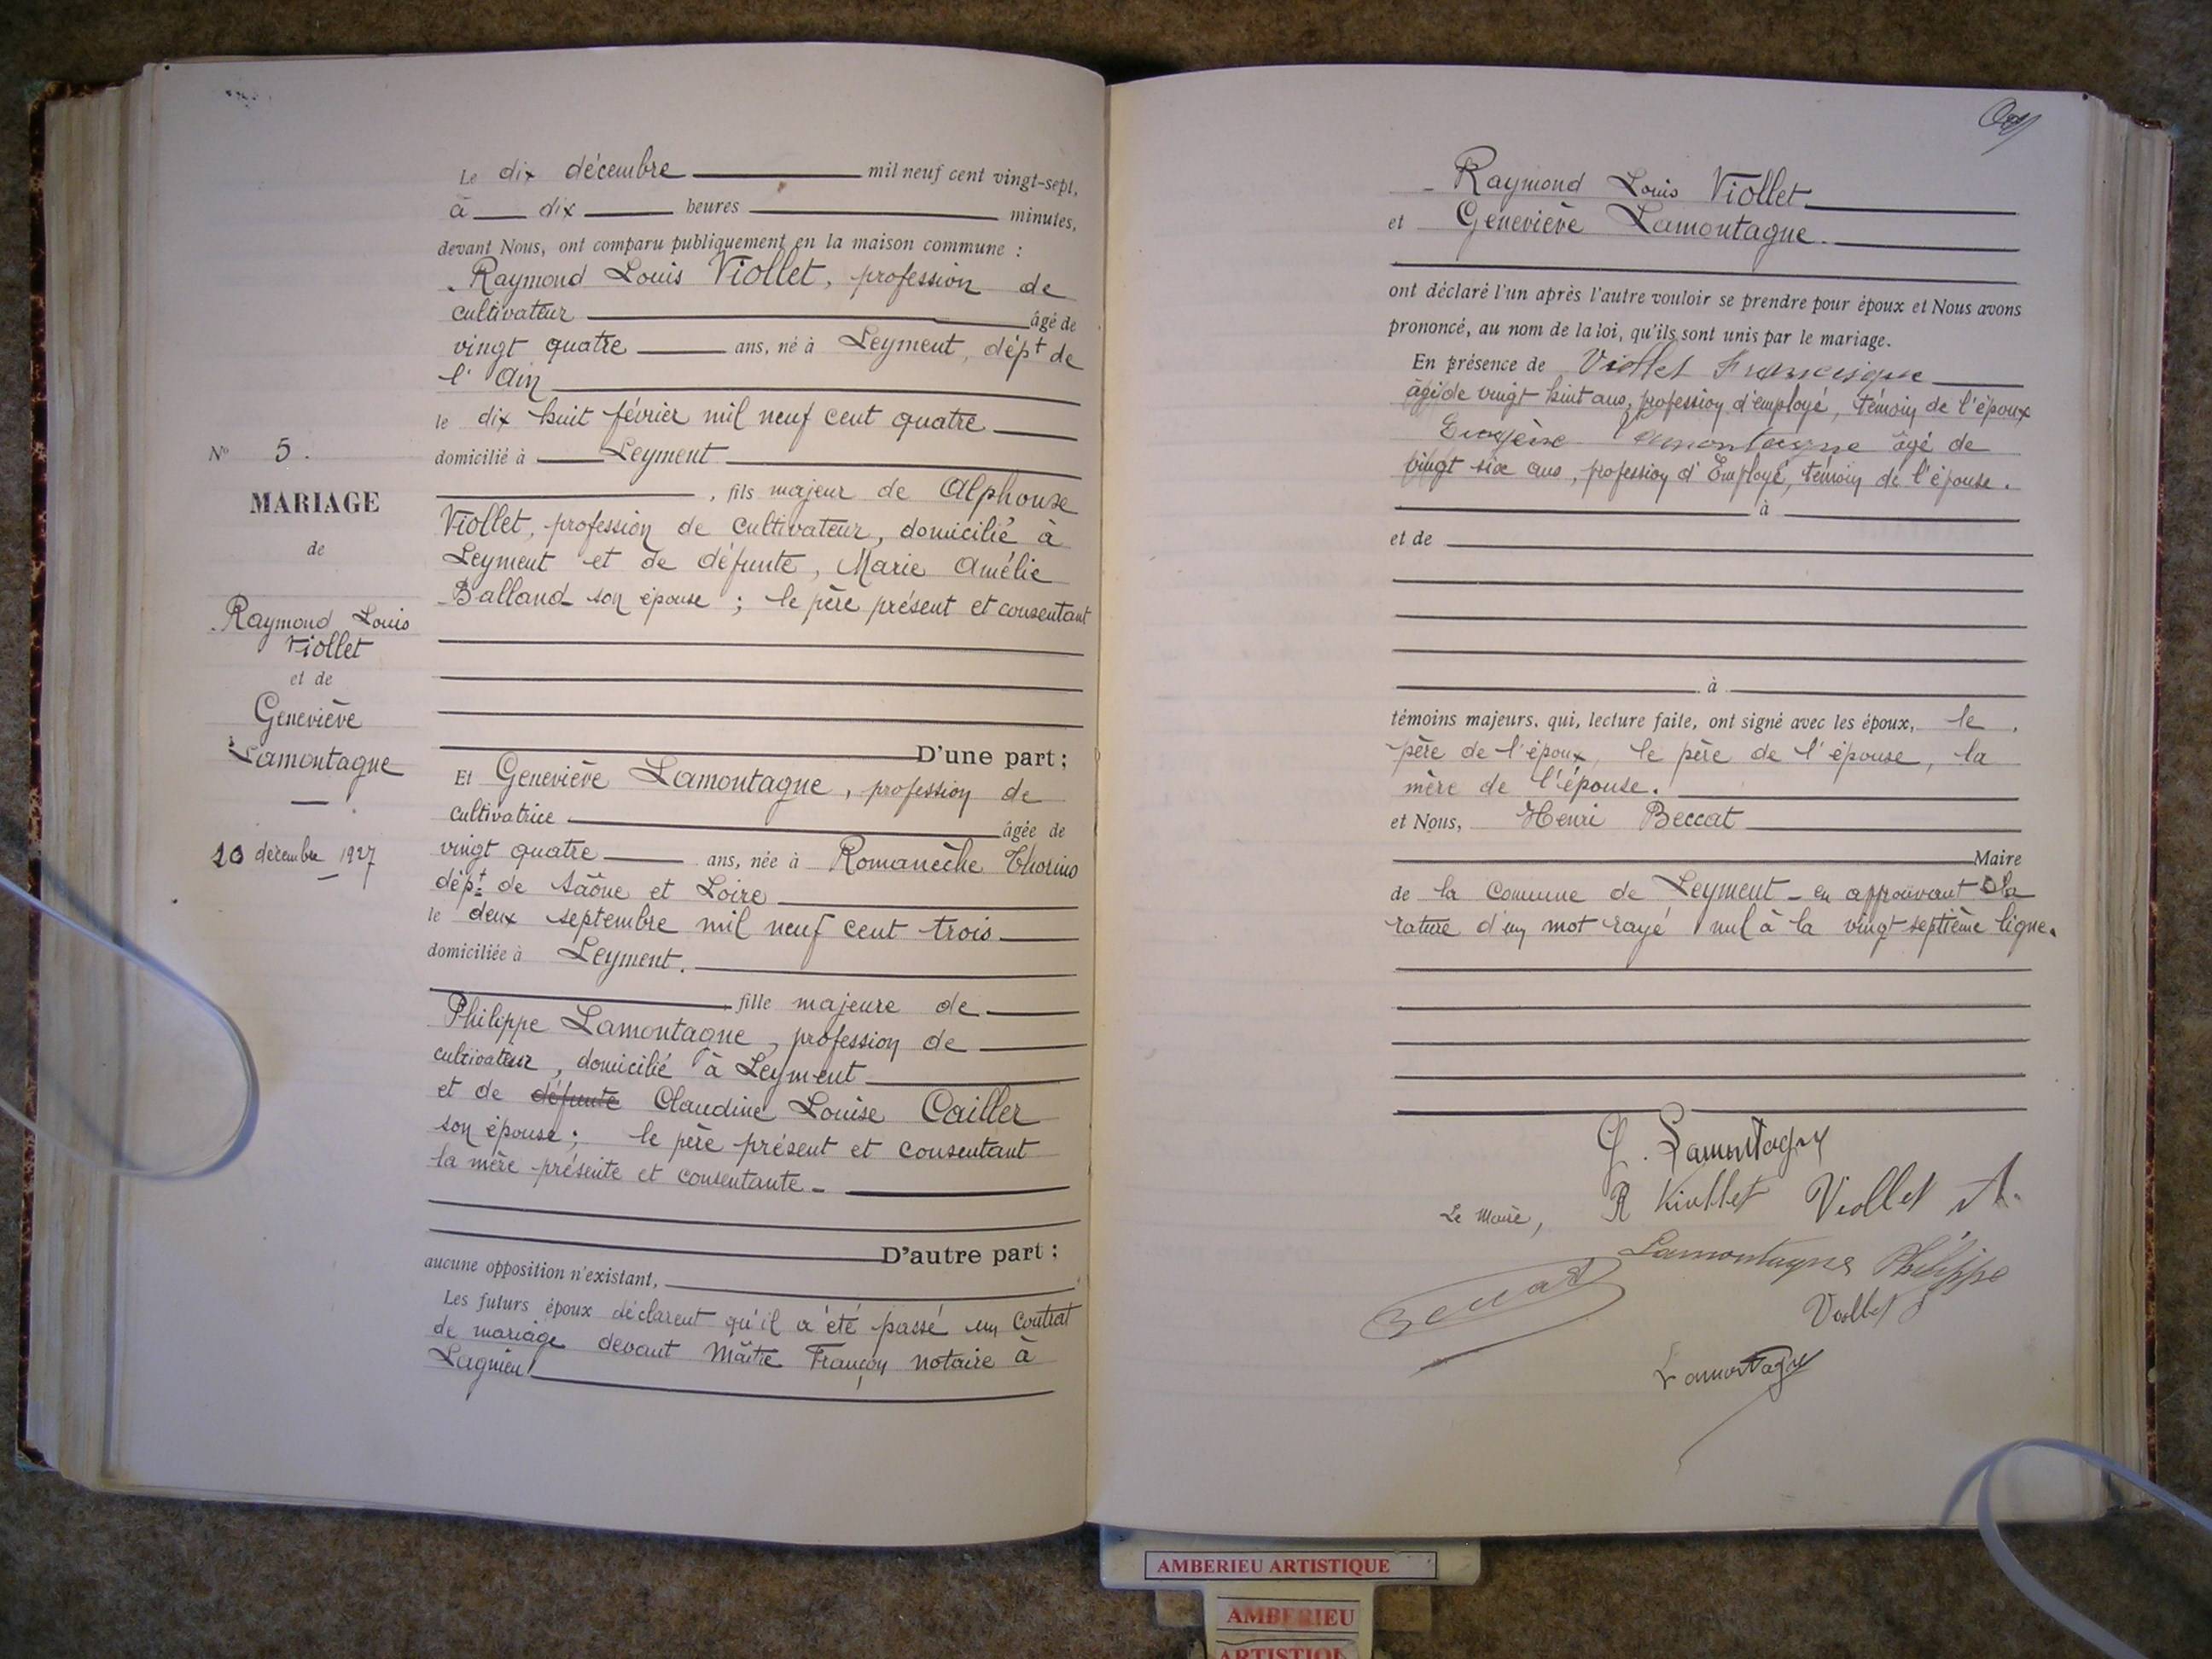 Le dix décembre mil neuf cent vingt-sept,
à dix heures minutes,
devant Nous, ont comparu publiquement en la maison commune :
Raymond Louis Viollet, profession de
cultivateur âgé de
vingt quatre ans, né à Leyment, dépt de
l'Ain
le dix huit février mil neuf cent quatre
domicilié à Leyment
, fils majeur de Alphonse
Viollet, profession de cultivateur, domicilié à
Leyment et de défunte, Marie Amélie
Balland son épouse ; le père présent et consentant
D'une part ;
Et Geneviève Lamontagne, profession de
cultivatrice âgée de
vingt quatre ans, née à Romanèche Thorins
dépt de Saône et Loire
le deux septembre mil neuf cent trois
domiciliée à Leyment.
fille majeure de
Philippe Lamontagne, profession de
cultivateur, domicilié à Leyment
et de défunte Claudine Louise Cailler
son épouse ; le père présent et consentant
la mère présente et consentante
D'autre part ;
aucune opposition n'existant,
Les futurs époux déclarent qu'il a été passé un contrat
de mariage devant Maître Françon notaire à
Lagnieu
No 5.
MARIAGE
de
Raymond Louis
Viollet
et de
Geneviève
Lamontagne
10 décembre 1927
Raymond Louis Viollet
et Geneviève Lamontagne.
ont déclaré l'un après l'autre vouloir se prendre pour époux et Nous avons
prononcé, au nom de la loi, qu'ils sont unis par le mariage.
En présence de Viollet Francisque
âgé de vingt huit ans, profession d'employé, témoin de l'époux
Eugène Lamontagne âgé de
vingt six ans, profession d'Employé, témoin de l'épouse.
à
et de
à
témoins majeurs, qui, lecture faite, ont signé avec les époux, le
père de l'époux, le père de l'épouse, la
mère de l'épouse.
et Nous, Henri Beccat
Maire
de la Commune de Leyment - en approuvant la
rature d'un mot rayé nul à la vingt septième ligne.
G. Lamontagne
R Viollet Viollet A.
Le Maire,
Lamontagne Philippe
Beccat
Viollet F
Lamontagne
AMBERIEU ARTISTIQUE
AMBERIEU
ARTISTIQUE